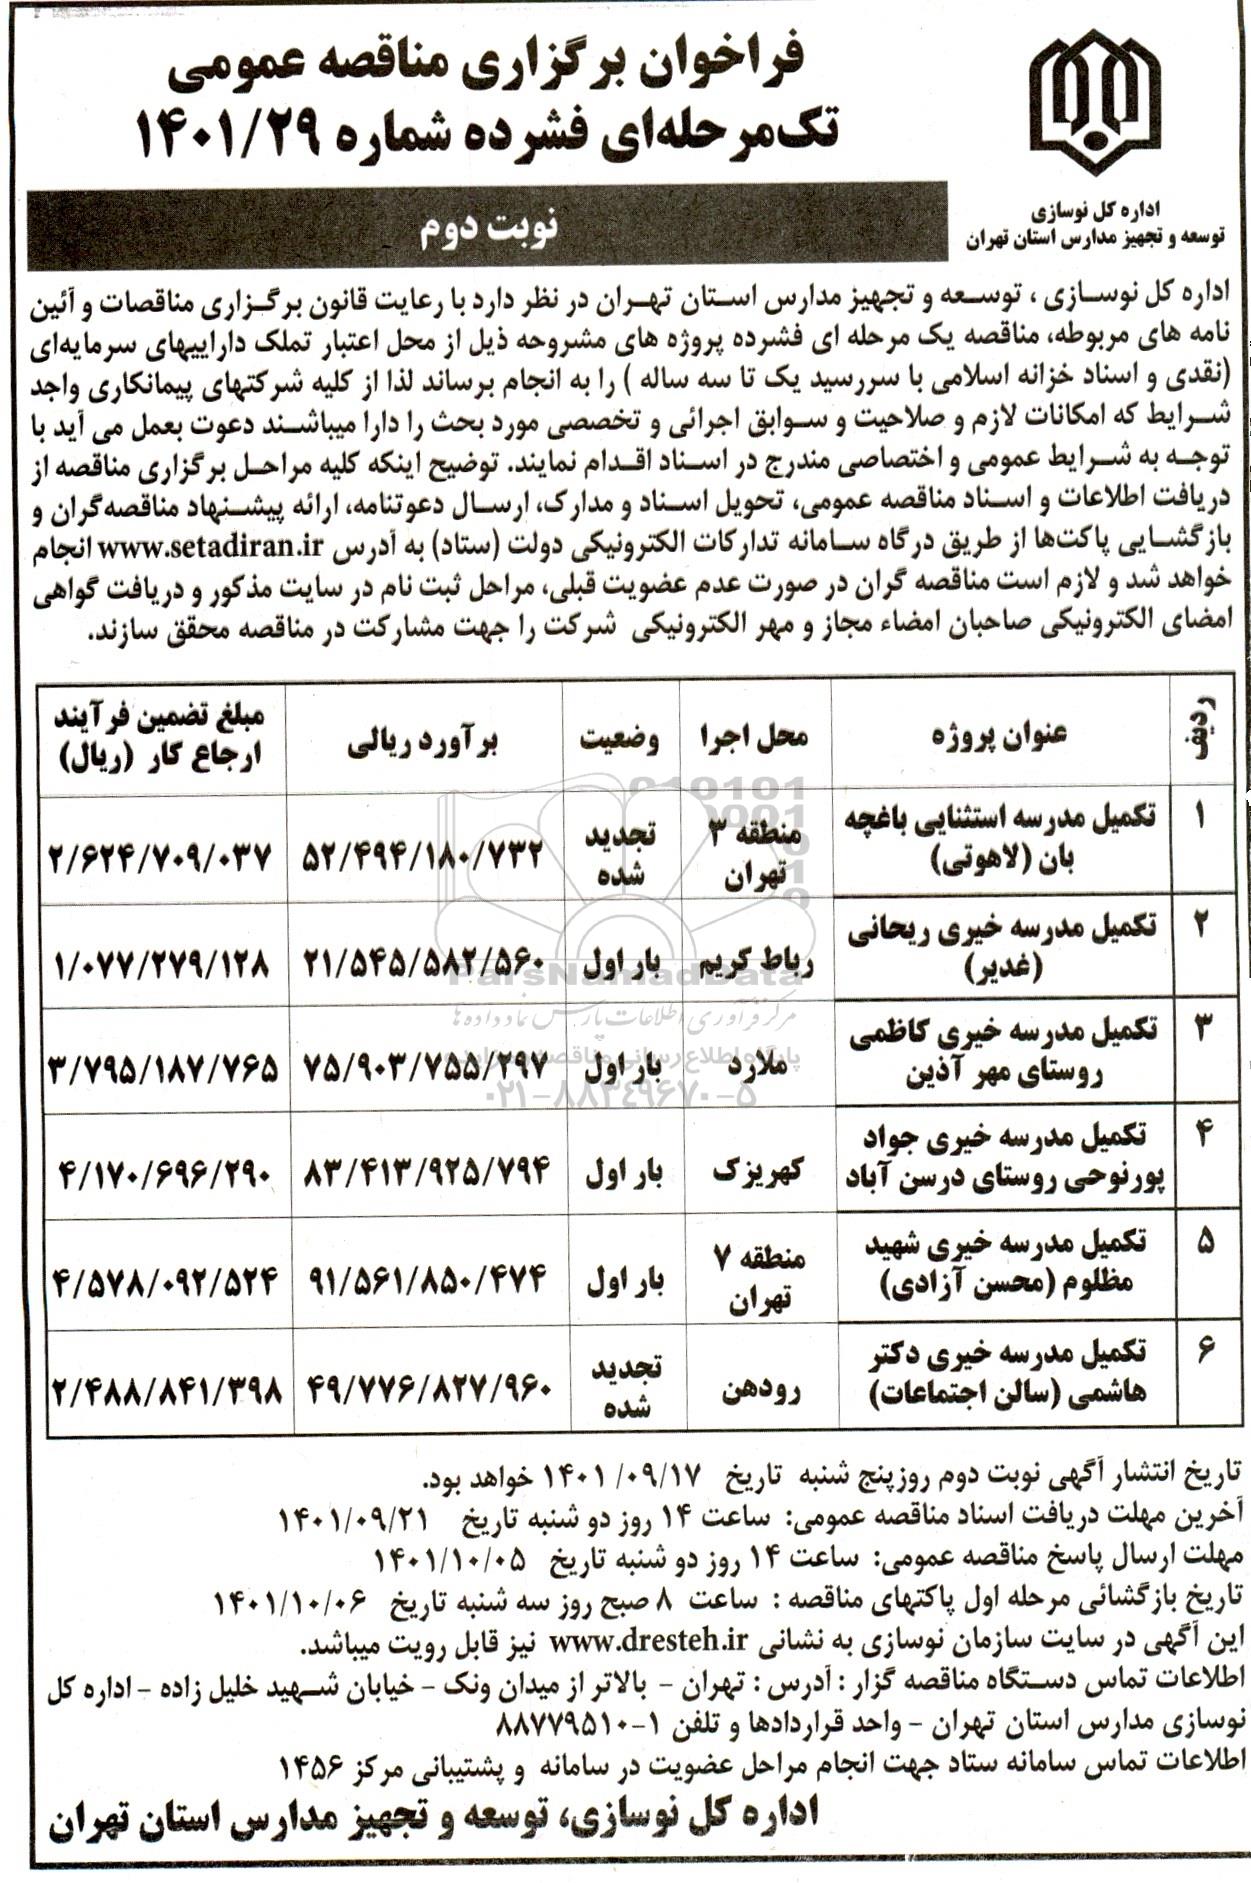 فراخوان برگزاری مناقصه عمومی
تک‌مرحله‌ای فشرده شماره ۱۴۰۱/۲۹
نوبت دوم
اداره کل نوسازی
توسعه و تجهیز مدارس استان تهران
اداره کل نوسازی ، توسعه و تجهیز مدارس استان تهران در نظر دارد با رعایت قانون برگزاری مناقصات و آئین
نامه های مربوطه، مناقصه یک مرحله ای فشرده پروژه های مشروحه ذیل از محل اعتبار تملک داراییهای سرمایه‌ای
(نقدی و اسناد خزانه اسلامی با سررسید یک تا سه ساله ) را به انجام برساند لذا از کلیه شرکتهای پیمانکاری واجد
شرایط که امکانات لازم و صلاحیت و سوابق اجرائی و تخصصی مورد بحث را دارا میباشند دعوت بعمل می آید با
توجه به شرایط عمومی و اختصاصی مندرج در اسناد اقدام نمایند. توضیح اینکه کلیه مراحل برگزاری مناقصه از
دریافت اطلاعات و اسناد مناقصه عمومی، تحویل اسناد و مدارک، ارسال دعوتنامه، ارائه پیشنهاد مناقصه‌گران و
بازگشایی پاکت‌ها از طریق درگاه سامانه تدارکات الکترونیکی دولت (ستاد) به آدرس www.setadiran.ir انجام
خواهد شد و لازم است مناقصه گران در صورت عدم عضویت قبلی، مراحل ثبت نام در سایت مذکور و دریافت گواهی
امضای الکترونیکی صاحبان امضاء مجاز و مهر الکترونیکی شرکت را جهت مشارکت در مناقصه محقق سازند.
ردیف عنوان پروژه محل اجرا وضعیت برآورد ریالی مبلغ تضمین فرآیند ارجاع کار (ریال)
۱ تکمیل مدرسه استثنایی باغچه بان (لاهوتی) منطقه ۳ تهران تجدید شده ۵۲/۴۹۴/۱۸۰/۷۳۲ ۲/۶۲۴/۷۰۹/۰۳۷
۲ تکمیل مدرسه خیری ریحانی (غدیر) رباط کریم بار اول ۲۱/۵۴۵/۵۸۲/۵۶۰ ۱/۰۷۷/۲۷۹/۱۲۸
۳ تکمیل مدرسه خیری کاظمی روستای مهر آذین ملارد بار اول ۷۵/۹۰۳/۷۵۵/۲۹۷ ۳/۷۹۵/۱۸۷/۷۶۵
۴ تکمیل مدرسه خیری جواد پورنوحی روستای درسن آباد کهریزک بار اول ۸۳/۴۱۳/۹۲۵/۷۹۴ ۴/۱۷۰/۶۹۶/۲۹۰
۵ تکمیل مدرسه خیری شهید مظلوم (محسن آزادی) منطقه ۷ تهران بار اول ۹۱/۵۶۱/۸۵۰/۴۷۴ ۴/۵۷۸/۰۹۲/۵۲۴
۶ تکمیل مدرسه خیری دکتر هاشمی (سالن اجتماعات) رودهن تجدید شده ۴۹/۷۷۶/۸۲۷/۹۶۰ ۲/۴۸۸/۸۴۱/۳۹۸
ParsNamadData
مرکز فرآوری اطلاعات پارس نماد داده‌ها
پایگاه اطلاع رسانی مناقصه
۰۲۱-۸۸۳۴۹۶۷۰-۵
تاریخ انتشار آگهی نوبت دوم روزپنج شنبه تاریخ ۱۴۰۱/۰۹/۱۷ خواهد بود.
آخرین مهلت دریافت اسناد مناقصه عمومی: ساعت ۱۴ روز دو شنبه تاریخ ۱۴۰۱/۰۹/۲۱
مهلت ارسال پاسخ مناقصه عمومی: ساعت ۱۴ روز دو شنبه تاریخ ۱۴۰۱/۱۰/۰۵
تاریخ بازگشائی مرحله اول پاکتهای مناقصه : ساعت ۸ صبح روز سه شنبه تاریخ ۱۴۰۱/۱۰/۰۶
این آگهی در سایت سازمان نوسازی به نشانی www.dresteh.ir نیز قابل رویت میباشد.
اطلاعات تماس دستگاه مناقصه گزار : آدرس : تهران - بالاتر از میدان ونک - خیابان شهید خلیل زاده - اداره کل
نوسازی مدارس استان تهران - واحد قراردادها و تلفن ۱-۸۸۷۷۹۵۱۰
اطلاعات تماس سامانه ستاد جهت انجام مراحل عضویت در سامانه و پشتیبانی مرکز ۱۴۵۶
اداره کل نوسازی، توسعه و تجهیز مدارس استان تهران